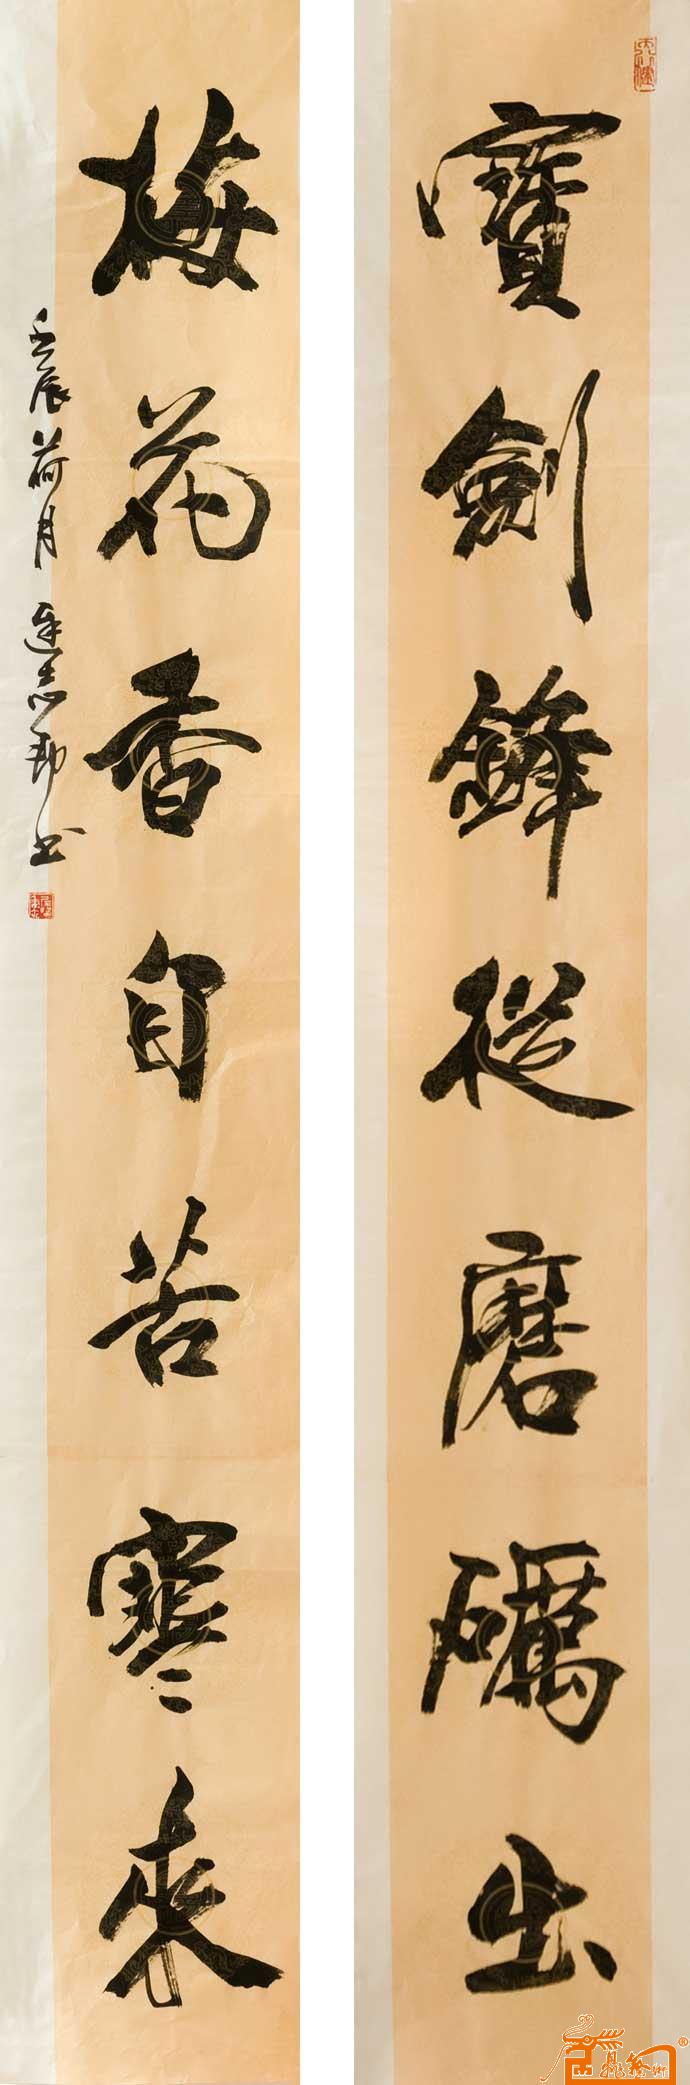 寶劍鋒從磨礪出
梅花香自苦寒來
壬辰荷月 連志勛书